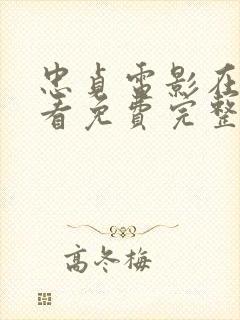 忠贞雷影在
看免费完整
高冬梅